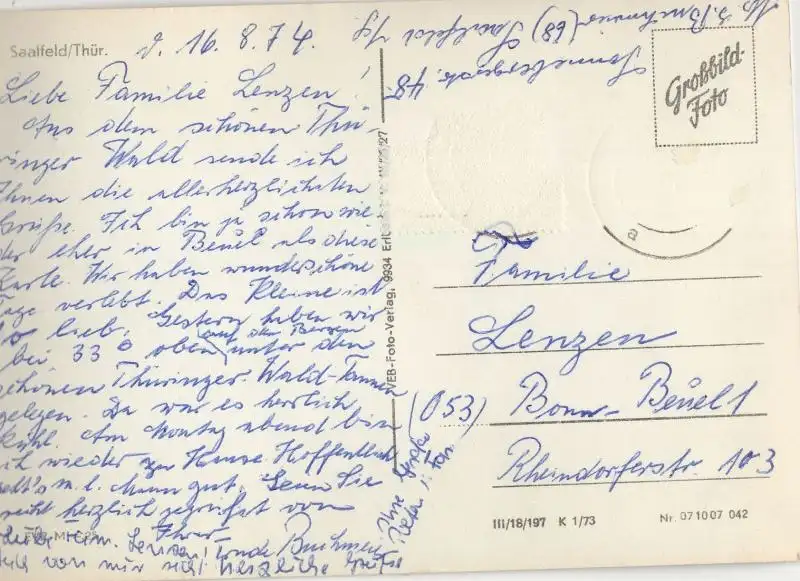 Saalfeld/Thür.
d. 16.8.74.
Liebe Familie Lenzen!
Aus dem schönen Thü-
ringer Wald sende ich
Ihnen die allerherzlichsten
Grüße. Ich bin ja schon wie-
der eher in Beuel als diese
Karte. Wir haben wunderschöne
Tage verlebt. Das Kleine ist
so lieb. Gestern haben wir
bei 33° oben auf den Bergen unter den
schönen Thüringer-Wald-Tannen
gelegen. Da war es herrlich
kühl. Am Montag abend bin
ich wieder zu Hause. Hoffentlich
geht's m. l. Mann gut. Seien Sie
recht herzlich gegrüßt von
Ihrer
Liebe Fam. Lenzen!
auch von mir recht herzliche Grüße
Ihre
VEB-Foto-Verlag, 9934
Abs. Buchmann
(68) Saalfeld
48
Großbild-
Foto
a
Familie
Lenzen
(053) Bonn-Beuel 1
Rheindorferstr. 103
III/18/197 K 1/73
Nr. 071007 042